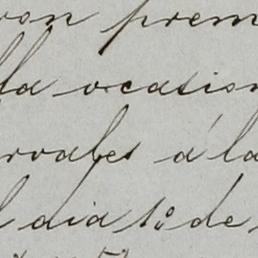 ron prem
la ocasion
rvales á la
l dia 1º de